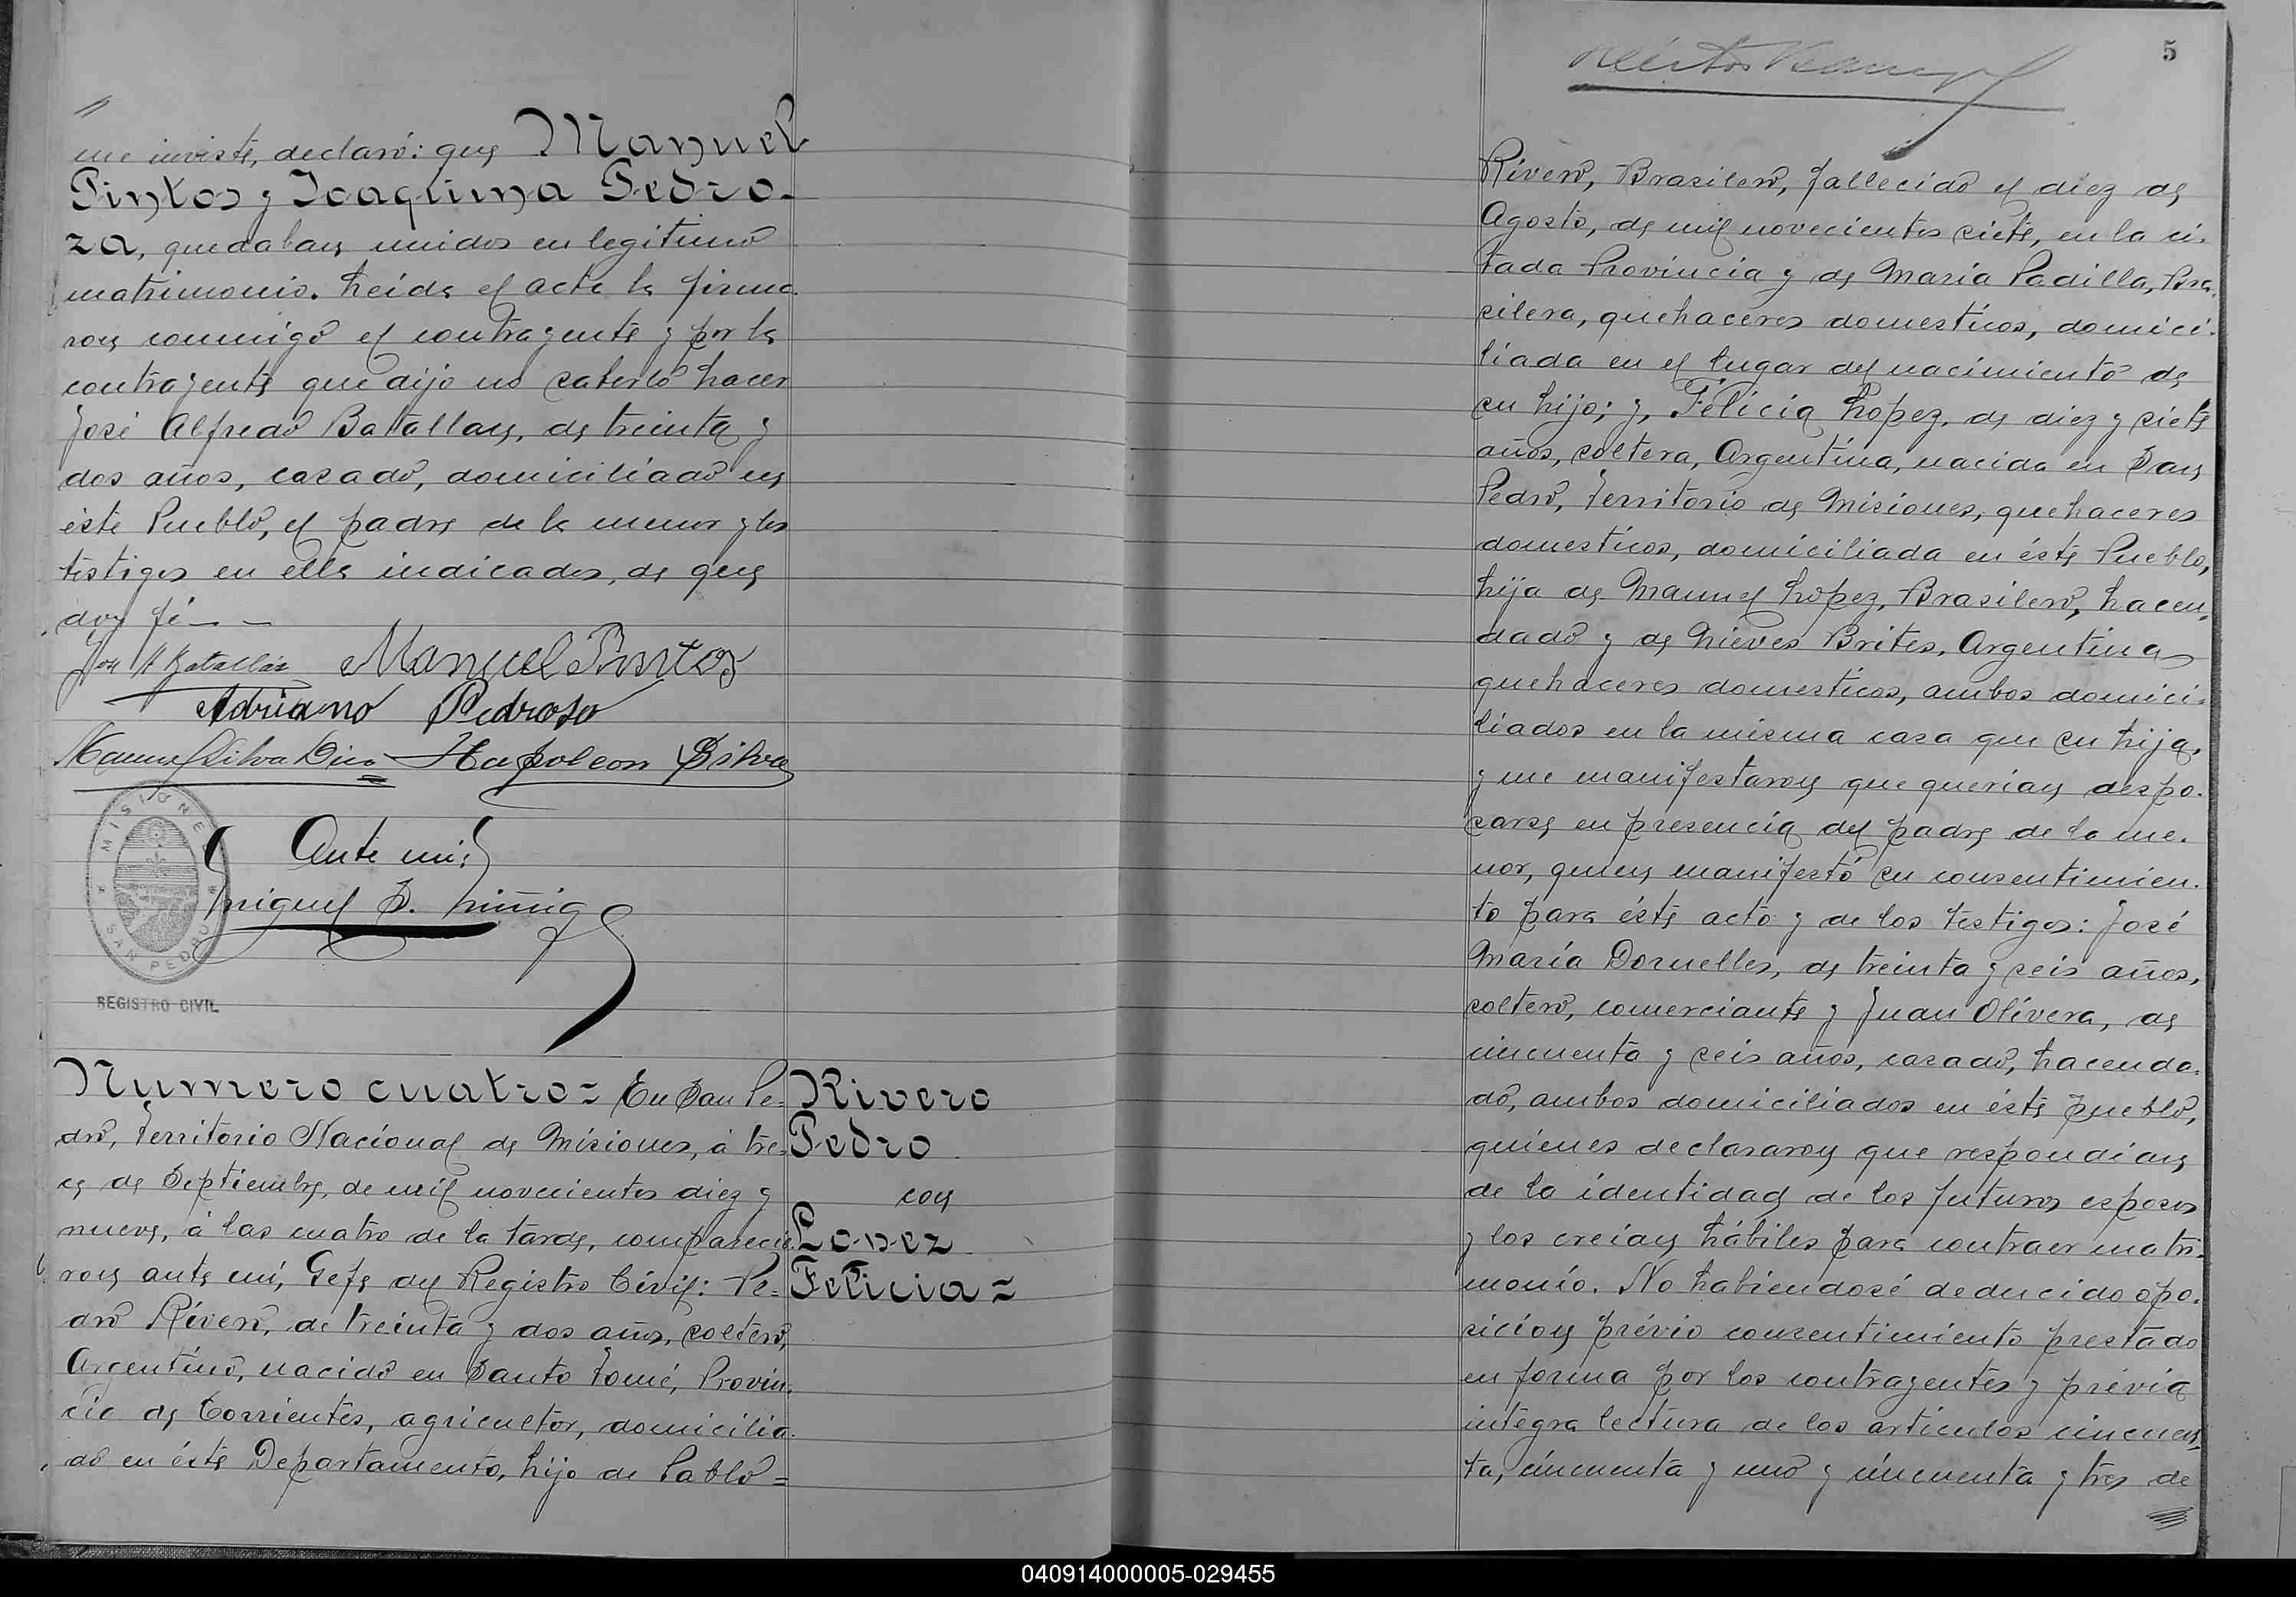 me inviste, declaró: que Manuel
Pintos y Joaquina Pedro-
za, quedaban unidos en legitimo
matrimonio. Leida el acta la firma-
ron conmigo el contrayente y por la
contrayente que dijo no saberlo hacer
José Alfredo Batallan, de treinta y
dos años, casado, domiciliado en
éste Pueblo, el padre de la menor y los
testigos en ella indicados, de que
doy fé — —
José A Batallán Manuel Pintos
Adriano Pedroso
Manuel Silva Dico Napoleon Silva
MISIONES
SAN PEDRO
REGISTRO CIVIL
Ante mi:
Miguel S.
Numero cuatro = En San Pe-
dro, Territorio Nacional de Misiones, á tre-
ce de Septiembre, de mil novecientos diez y
nueve, á las cuatro de la tarde, comparecie-
ron ante mí, Gefe del Registro Civil: Pe=
dro Rivero, de treinta y dos años, soltero,
Argentino, nacido en Santo Tomé, Provin-
cia de Corrientes, agricultor, domicilia-
do en éste Departamento, hijo de Pablo =
Rivero
Pedro
con
Lopez
Felicia =
5
Rivero, Brasilero, fallecido el diez de
Agosto, de mil novecientos siete, en la ci-
tada Provincia y de Maria Padilla, Bra-
silera, quehaceres domesticos, domici-
liada en el lugar del nacimiento de
su hijo; y, Felicia Lopez, de diez y siete
años, soltera, Argentina, nacida en San
Pedro, Territorio de Misiones, quehaceres
domesticos, domiciliada en éste Pueblo,
hija de Manuel Lopez, Brasilero, hacen-
dado y de Nieves Brites, Argentina
quehaceres domesticos, ambos domici-
liados en la misma casa que su hija,
y me manifestaron que querian despo-
sarse en presencia del padre de la me-
nor, quien manifestó su consentimien-
to para éste acto y de los testigos: José
María Dornelles, de treinta y seis años,
soltero, comerciante y Juan Olivera, de
cincuenta y seis años, casado, hacenda-
do, ambos domiciliados en éste pueblo,
quienes declararon que respondian
de la identidad de los futuros esposos
y los creian hábiles para contraer matri-
monio. No habiendosé deducido opo-
sicion prévio consentimiento prestado
en forma por los contrayentes y prévia
integra lectura de los articulos cincuen-
ta, cincuenta y uno y cincuenta y tres de
040914000005-029455